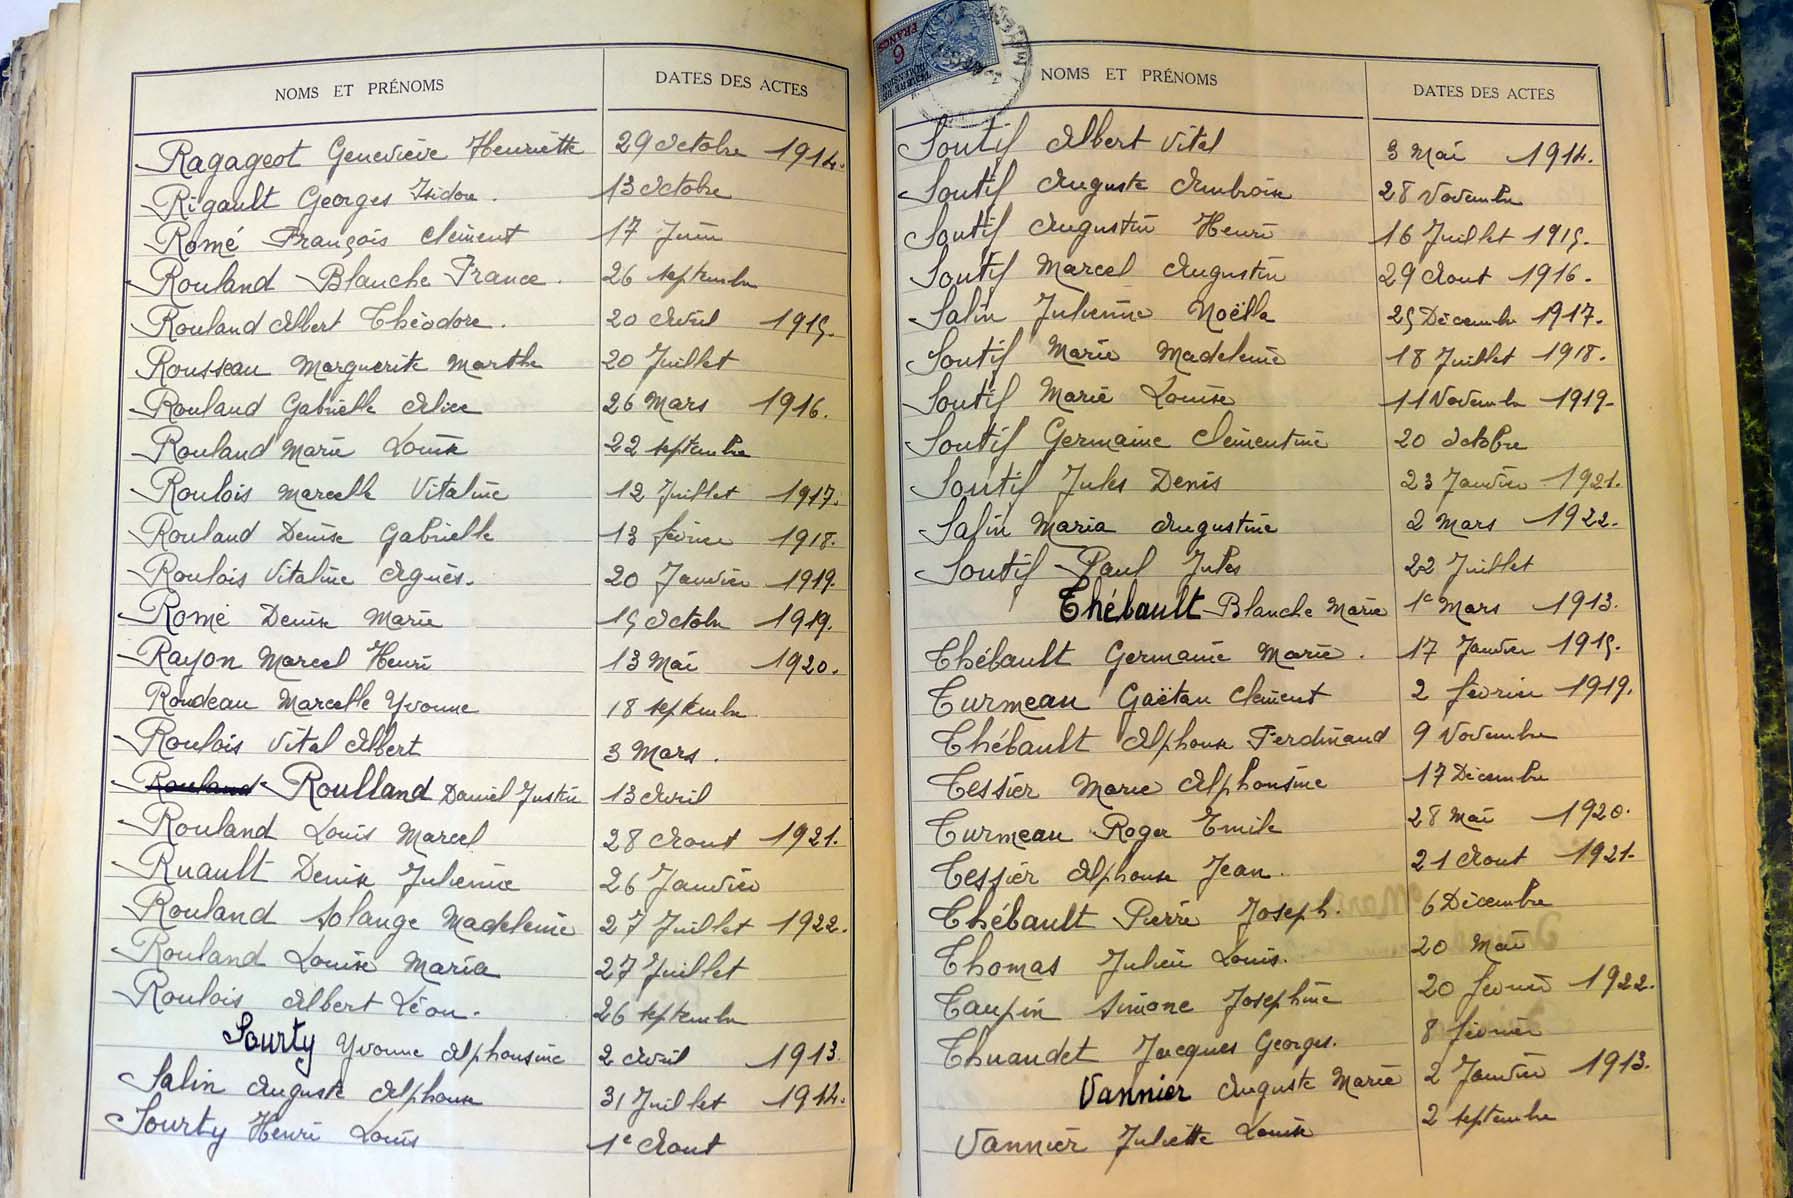 NOMS ET PRÉNOMS DATES DES ACTES
Ragageot Geneviève Henriette 29 Octobre 1914.
Rigault Georges Isidore. 13 Octobre
Romé François Clément 17 Juin
Rouland Blanche France. 26 septembre
Rouland Albert Théodore. 20 Avril 1915.
Rousseau Marguerite Marthe 20 Juillet
Rouland Gabrielle Alice 26 Mars 1916.
Rouland Marie Louise 22 septembre
Roulois Marcelle Vitaline 12 Juillet 1917.
Rouland Denise Gabrielle 13 février 1918.
Roulois Vitaline Agnès. 20 Janvier 1919.
Romé Denise Marie 15 Octobre 1919.
Rayon Marcel Henri 13 Mai 1920.
Rondeau Marcelle Yvonne 18 septembre
Roulois Vital Albert 3 Mars.
Rouland Roulland Daniel Justin 13 Avril
Rouland Louis Marcel 28 Aout 1921.
Ruault Denise Julienne 26 Janvier
Rouland Solange Madeleine 27 Juillet 1922.
Rouland Louise Maria 27 Juillet
Roulois Albert Léon. 26 septembre
Sourty Yvonne Alphonsine 2 Avril 1913.
Salin Auguste Alphonse 31 Juillet 1914.
Sourty Henri Louis 1e Aout
6 FRANCS
NOMS ET PRÉNOMS DATES DES ACTES
Soutif Albert Vital 3 Mai 1914.
Soutif Auguste Ambroise 28 Novembre
Soutif Augustin Henri 16 Juillet 1915.
Soutif Marcel Augustin 29 Aout 1916.
Salin Julienne Noëlla 25 Décembre 1917.
Soutif Marie Madeleine 18 Juillet 1918.
Soutif Marie Louise 11 Novembre 1919.
Soutif Germaine Clémentine 20 Octobre
Soutif Jules Denis 23 Janvier 1921.
Salin Maria Augustine 2 Mars 1922.
Soutif Paul Jules 22 Juillet
Thébault Blanche Marie 1e Mars 1913.
Thébault Germaine Marie. 17 Janvier 1915.
Turmeau Gaëtan Clément 2 février 1919.
Thébault Alphonse Ferdinand 9 Novembre
Tessier Marie Alphonsine 17 Décembre
Turmeau Roger Emile 28 Mai 1920.
Tessier Alphonse Jean. 21 Aout 1921.
Thébault Pierre Joseph. 6 Décembre
Thomas Julien Louis. 20 Mai
Taupin Simone Josephine 20 février 1922.
Thuaudet Jacques Georges. 8 février
Vannier Auguste Marie 2 Janvier 1913.
Vannier Juliette Louise 2 septembre